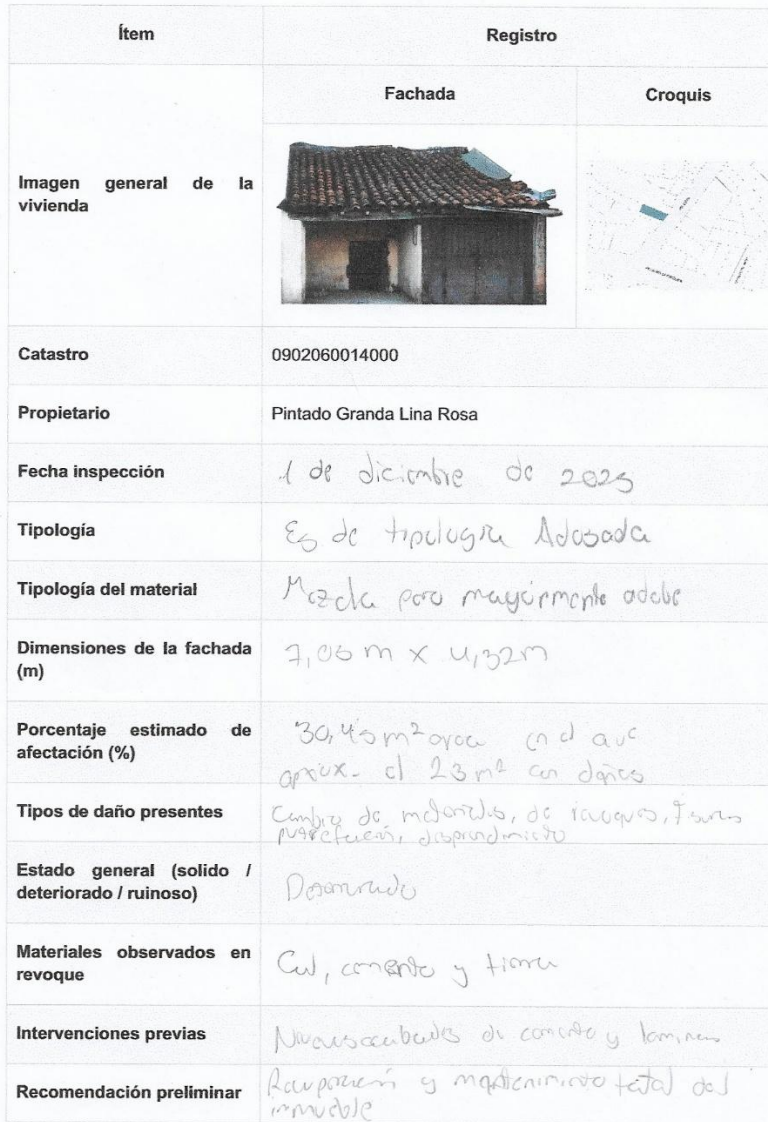 Ítem Registro
Fachada Croquis
Imagen general de la
vivienda
Catastro 0902060014000
Propietario Pintado Granda Lina Rosa
Fecha inspección 1 de diciembre de 2025
Tipología Es de tipología Adosada
Tipología del material Mezcla pero mayormente adobe
Dimensiones de la fachada 7,05 m x 4,32m
(m)
Porcentaje estimado de 30,45 m² area en el que
afectación (%) aprox. el 23 m² con daños
Tipos de daño presentes Cambio de materiales, de revoques, fisuras
putrefacción, desprendimiento
Estado general (solido /
deteriorado / ruinoso) Deteriorado
Materiales observados en Cal, cemento y tierra
revoque
Intervenciones previas Nuevos acabados de cemento y laminas
Recomendación preliminar Recuperación y mantenimiento total del
inmueble